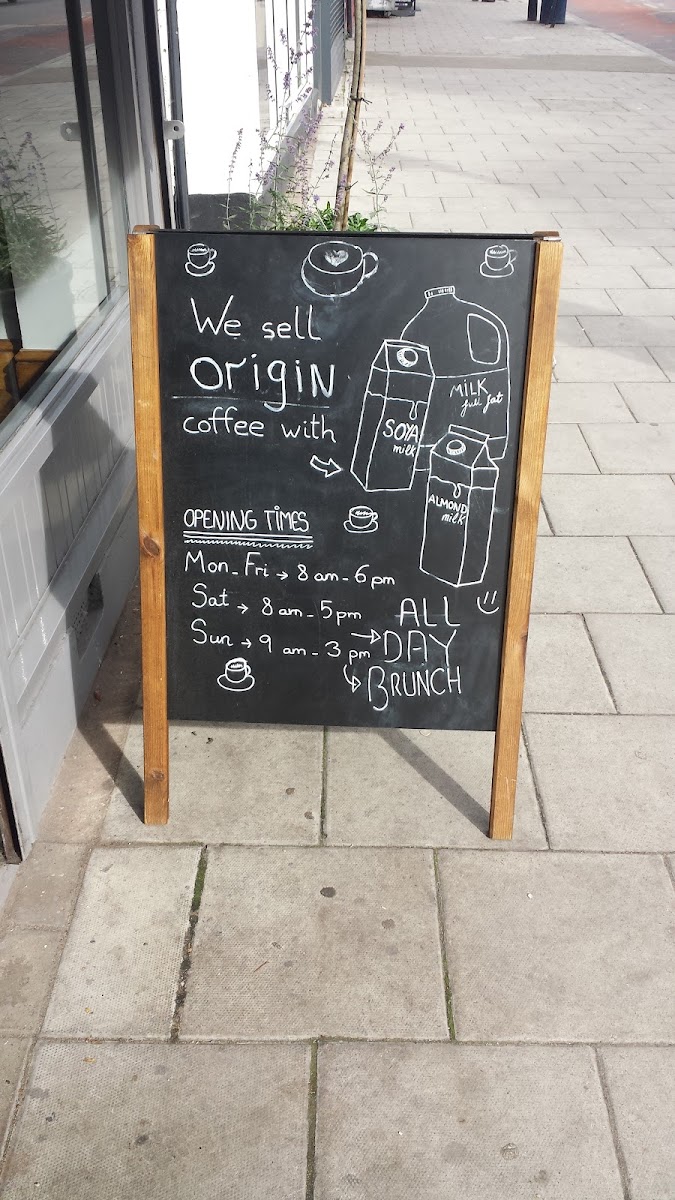 We sell
origin
coffee with
MILK
full fat
SOYA
milk
ALMOND
milk
OPENING TIMES
Mon-Fri → 8 am - 6 pm
Sat → 8 am - 5 pm
Sun → 9 am - 3 pm
ALL
DAY
BRUNCH